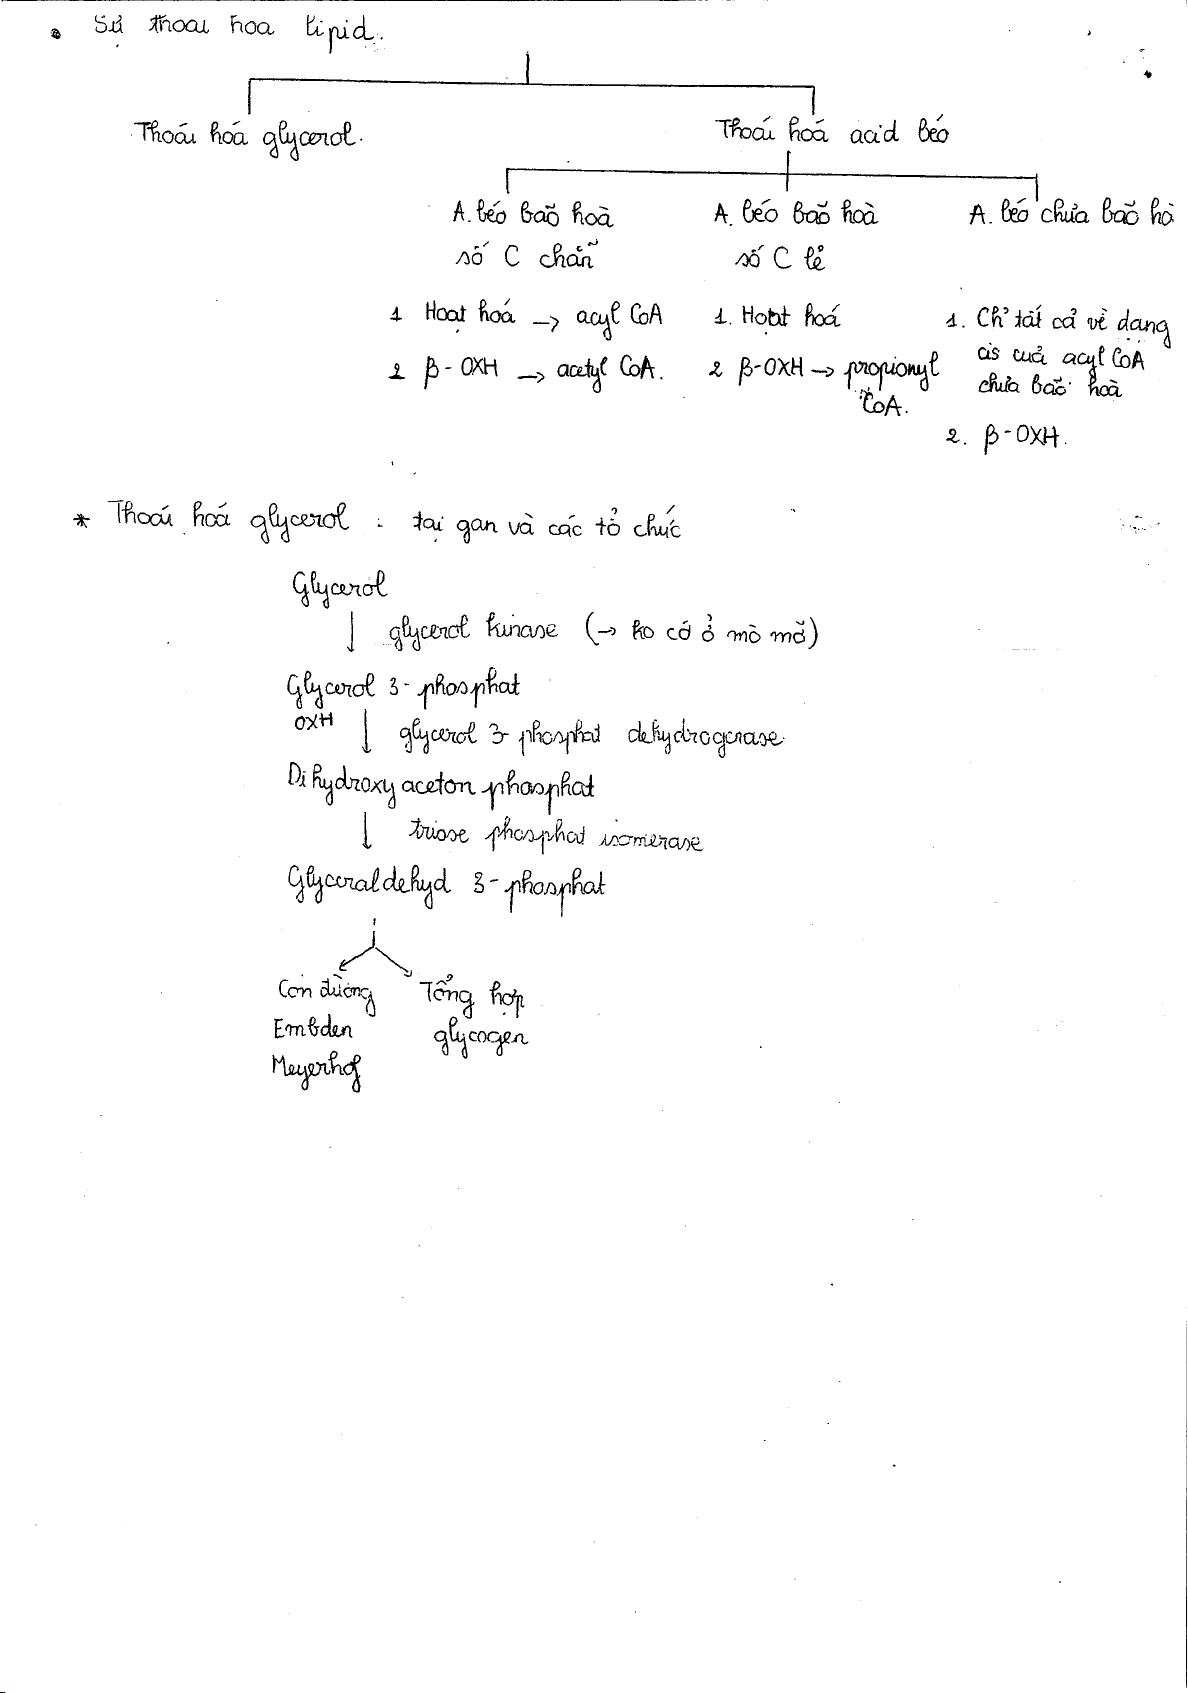 Sự thoái hoá lipid.
Thoái hoá glycerol. Thoái hoá acid béo
A. béo bão hoà A. béo bão hoà A. béo chưa bão hò
số C chẵn số C lẻ
1 Hoạt hoá → acyl CoA 1. Hoạt hoá 1. Ch' tất cả về dạng
cis của acyl CoA
2 β - OXH → acetyl CoA. 2 β-OXH → propionyl chưa bão hoà
CoA.
2. β-OXH.
* Thoái hoá glycerol : tại gan và các tổ chức
Glycerol
↓ glycerol kinase (→ ko có ở mô mỡ)
Glycerol 3-phosphat
OXH ↓ glycerol 3-phosphat dehydrogenase
Dihydroxy aceton phosphat
↓ triose phosphat isomerase
Glyceraldehyd 3-phosphat
Con đường Tổng hợp
Embden glycogen
Meyerhof